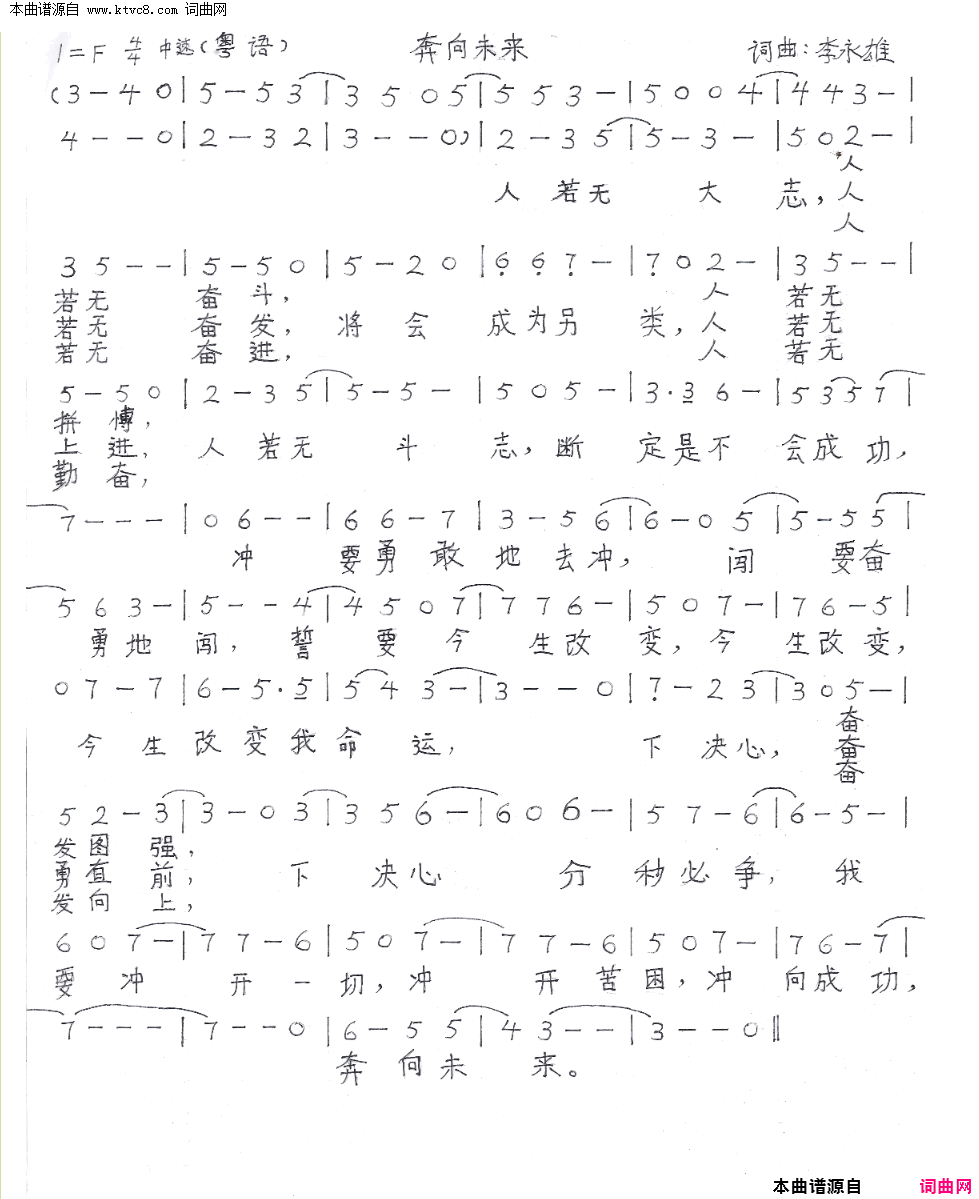 本曲谱源自 www.ktvc8.com 词曲网
1=F 4/4 中速(粤语) 奔向未来 词曲:李永雄
(3-40|5-53|3505|553-|5004|443-|
4--0|2-32|3--0)|2-35|5-3-|502-|
人
人若无 大 志,人
人
35--|5-50|5-20|667-|702-|35--|
若无 奋斗, 人 若无
若无 奋发, 将会 成为另 类,人 若无
若无 奋进, 人 若无
5-50|2-35|5-5-|505-|3·36-|5357|
拼博,
上进, 人若无 斗 志,断 定是不 会成功,
勤奋,
7---|06--|66-7|3-56|6-05|5-55|
冲 要勇敢地去冲, 闯 要奋
563-|5--4|4507|776-|507-|76-5|
勇地闯, 誓要今 生改变,今 生改变,
07-7|6-5·5|543-|3--0|7-23|305-|
奋
今生改变我命运, 下决心,奋
奋
52-3|3-03|356-|606-|57-6|6-5-|
发图强,
勇直前, 下 决心 分秒必争, 我
发向上,
607-|77-6|507-|77-6|507-|76-7|
要冲 开一切,冲 开苦困,冲 向成功,
7---|7--0|6-55|43--|3--0‖
奔向未 来。
本曲谱源自 词曲网